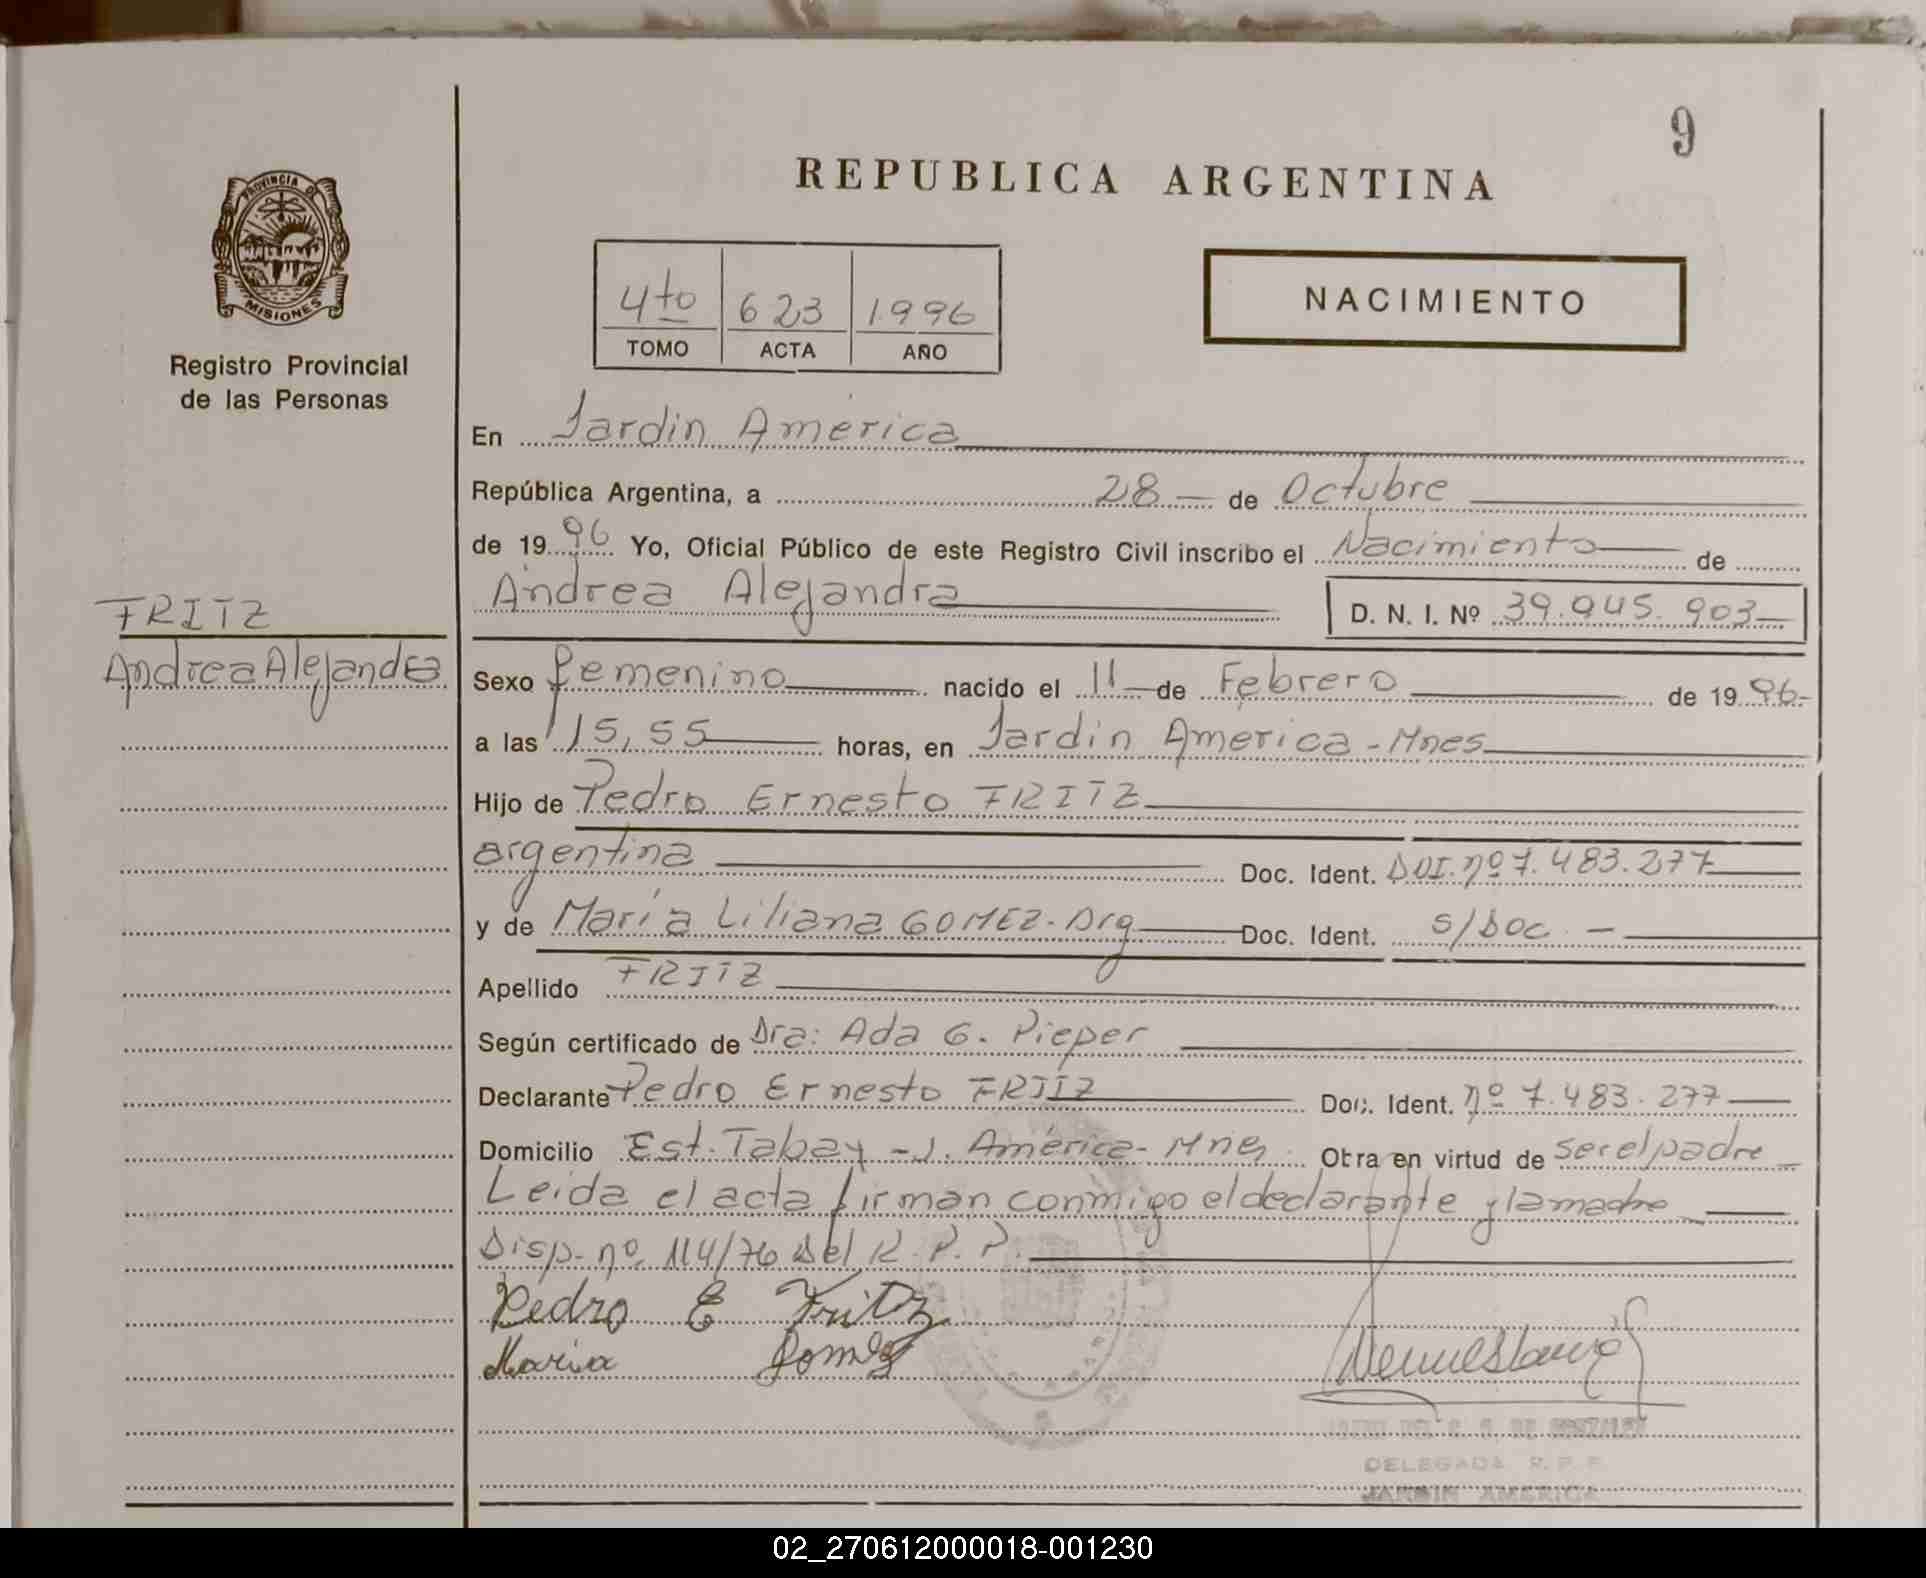 9
REPUBLICA ARGENTINA
PROVINCIA DE
MISIONES
Registro Provincial
de las Personas
4to 623 1996
TOMO ACTA AÑO
NACIMIENTO
En Jardin América
República Argentina, a 28 - de Octubre
de 1996 Yo, Oficial Público de este Registro Civil inscribo el Nacimiento de
Andrea Alejandra D. N. I. Nº 39.945.903
FRITZ
Andrea Alejandra
Sexo femenino nacido el 11 de Febrero de 1996-
a las 15,55 horas, en Jardin América - Mnes
Hijo de Pedro Ernesto FRITZ
argentina Doc. Ident. DNI. nº 7.483.277
y de María Liliana GOMEZ - Arg Doc. Ident. S/Doc -
Apellido FRITZ
Según certificado de Dra: Ada G. Pieper
Declarante Pedro Ernesto FRITZ Doc. Ident. nº 7.483.277
Domicilio Est. Tabay - J. América - Mnes Otra en virtud de ser el padre
Leida el acta firman conmigo el declarante y la madre
Disp. nº 114/76 Del R. P. P.
Pedro E Fritz
Maria Gomez
DELEGADA R. P. P.
JARDIN AMERICA
02_270612000018-001230